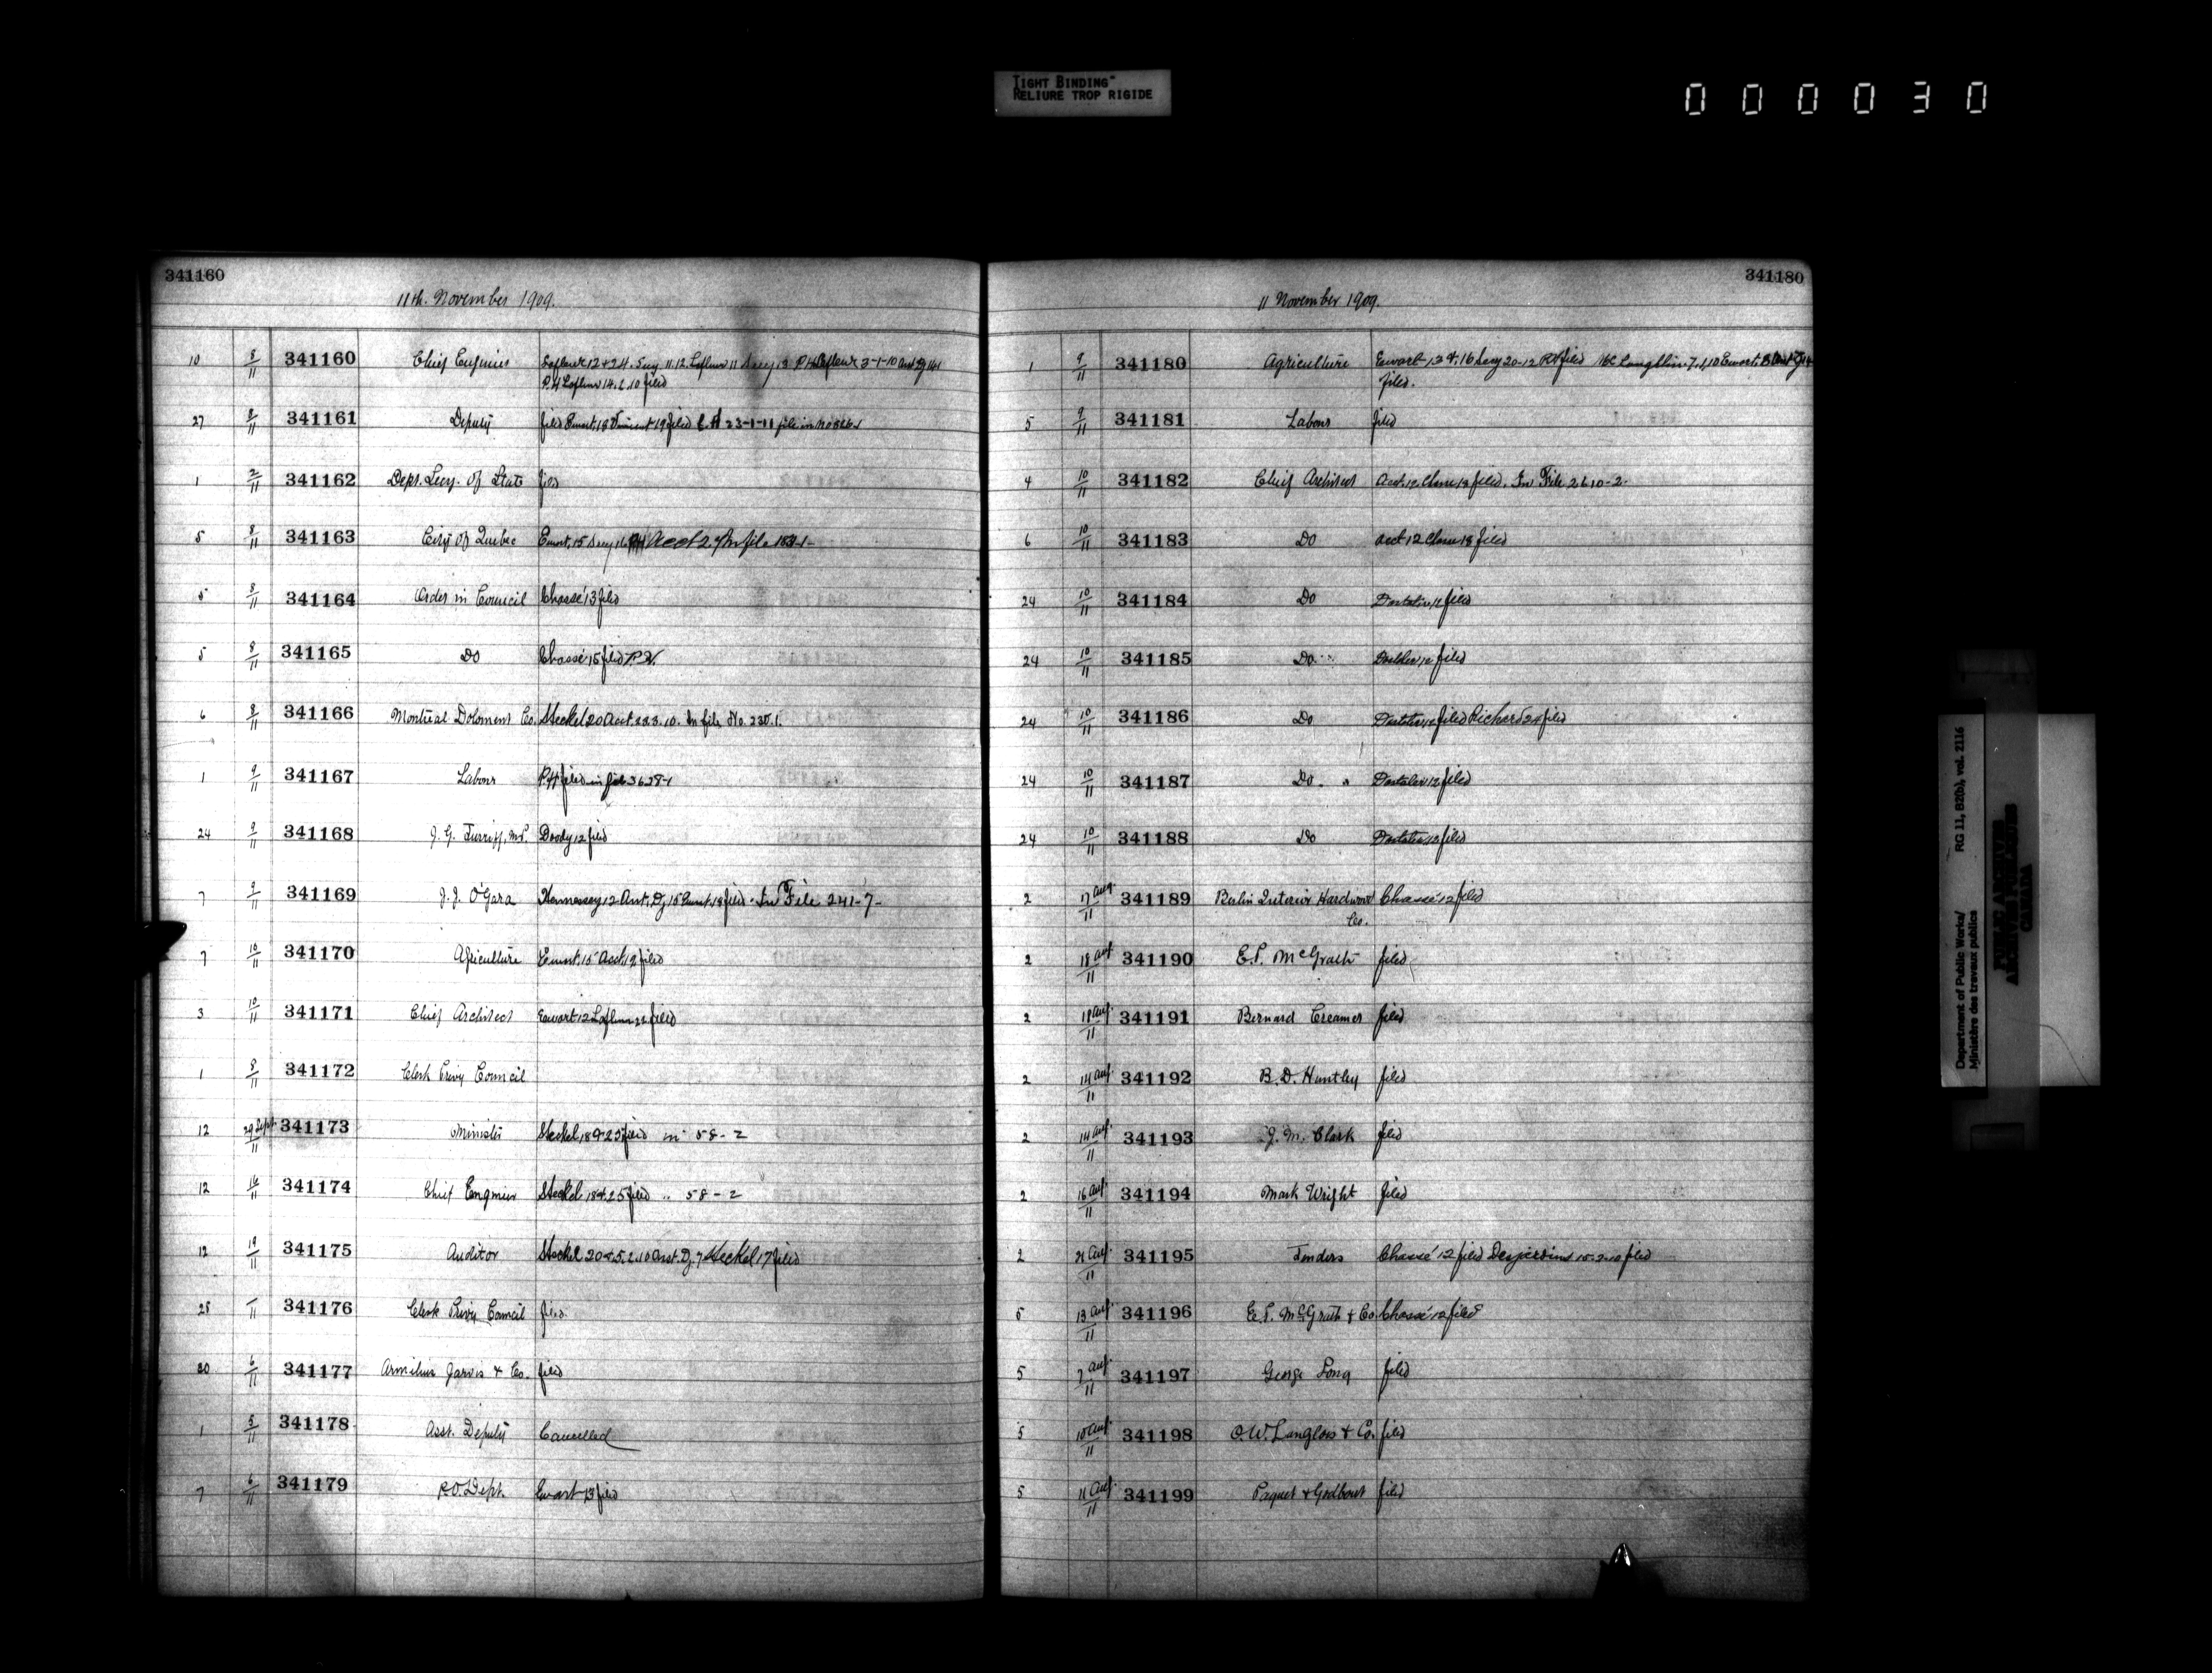 TIGHT BINDING
RELIURE TROP RIGIDE
000030
341160
11th. November 1909.
10 8/11 341160 Chief Engineer Lafleur 12 & 24. Secy 11.12 Lafleur 11 Secy 13 P.H. Lafleur 3-1-10
P.H. Lafleur 14.2.10 filed
27 8/11 341161 Deputy filed Ewart, 18 19 filed 23-1-11 file in
1 2/11 341162 Dept. Secy. of State
5 8/11 341163 City of Quebec Ewart, 15 Secy 16 Acct 2 In file
5 8/11 341164 Order in Council Chassé 13 filed
5 8/11 341165 Do Chassé 15 filed P.H.
6 8/11 341166 Montreal Co. Steckel 20 Acct. In file No. 235.1.
1 9/11 341167 Labour P.H. filed in file
24 9/11 341168 J. G. Turriff, M.P. Doody 12 filed
7 9/11 341169 J. J. O'Gara Hennessey 12 Ant. Dy. 15 Ewart, 18 filed. In File 241-7-
7 10/11 341170 Agriculture Ewart, 15 Acct. 19 filed
3 10/11 341171 Chief Architect Ewart 12 Lafleur 22 filed
1 8/11 341172 Clerk Privy Council
12 29 Sept/11 341173 Minister Steckel, 18 & 25 filed in 58-2
12 16/11 341174 Chief Engineer Steckel, 18 & 25 filed " 58-2
12 19/11 341175 Auditor Steckel 20 & 5.2.10 Asst. Dy. 7 Steckel 17 filed
25 /11 341176 Clerk Privy Council filed
20 6/11 341177 Armilius Jarvis & Co. filed
1 5/11 341178 Asst. Deputy Cancelled
7 6/11 341179 P.O. Dept. Ewart 13 filed
341180
11 November 1909.
1 9/11 341180 Agriculture Ewart 13 & 16 Secy 20-12 P.H. filed Ewart,
filed.
5 9/11 341181 Labour filed
4 10/11 341182 Chief Architect Acct. 12. 13 filed. In File 2610-2.
6 10/11 341183 Do Acct 12 18 filed
24 10/11 341184 Do 12 filed
24 10/11 341185 Do. 12 filed
24 10/11 341186 Do 12 filed Richard 24 filed
24 10/11 341187 Do. 12 filed
24 10/11 341188 Do 12 filed
2 17 Aug./11 341189 Berlin Interior Hardwood Chassé 12 filed
Co.
2 18 Aug/11 341190 E.P. McGrath filed
2 18 Aug./11 341191 Bernard Creamer filed
2 14 Aug/11 341192 B. D. Huntley filed
2 14 Aug/11 341193 J. M. Clark filed
2 16 Aug./11 341194 Mark Wright filed
2 21 Aug/11 341195 Tenders Chassé 12 filed Desjardins 15-2-10 filed
5 13 Aug./11 341196 E. P. McGrath & Co. Chassé 12 filed
5 7 Aug./11 341197 George Long filed
5 10 Aug./11 341198 O. W. Langlois & Co. filed
5 11 Aug./11 341199 Paquet & Godbout filed
Department of Public Works/
Ministère des travaux publics
RG 11, B2(b), vol. 2116
PUBLIC ARCHIVES
ARCHIVES PUBLIQUES
CANADA